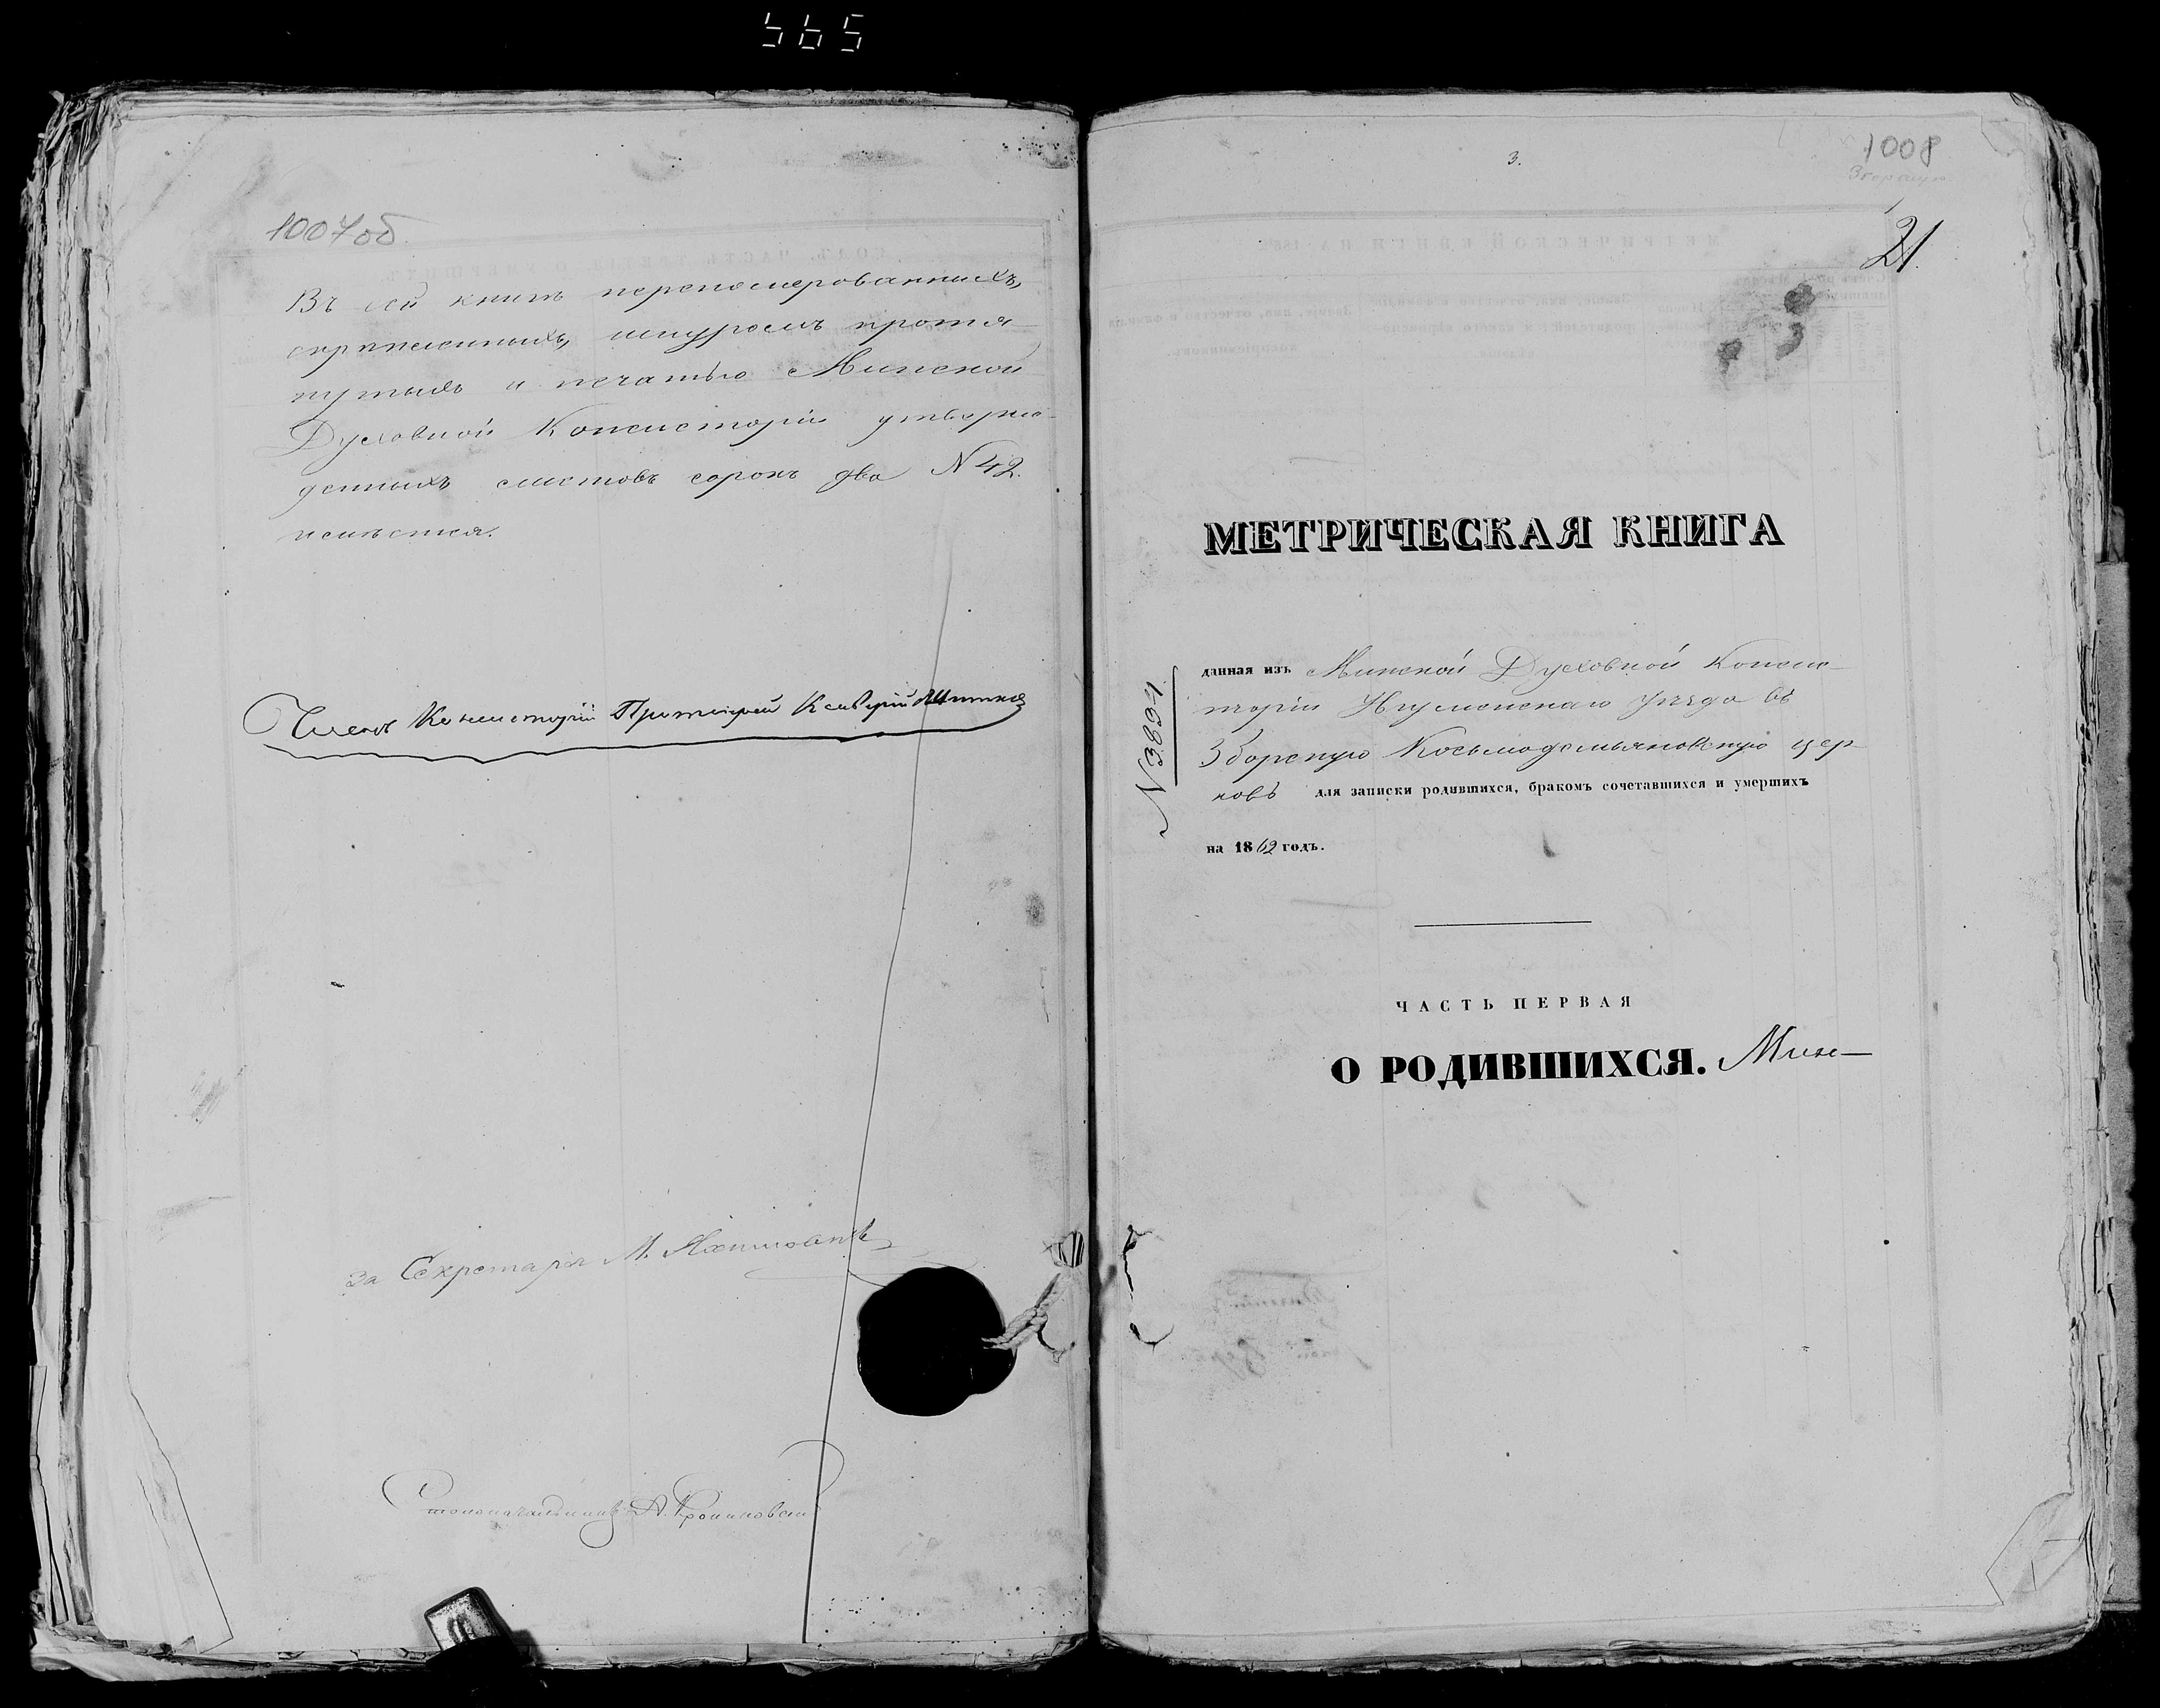 565
1007об.
Въ сей книгѣ перенумерованныхъ,
скрѣпленныхъ, шнуромъ протя-
нутыхъ и печатью Минской
Духовной Консисторіи утверж-
денныхъ листовъ сорокъ два N 42.
имѣется.
Членъ Консисторіи Протоіерей
За Секретаря М.
Столоначальникъ А.
3.
1008
21.
МЕТРИЧЕСКАЯ КНИГА
N 3894.
данная изъ Минской Духовной Консис-
торіи Игуменскаго уѣзда въ
Зборскую Косьмодемьяновскую цер-
ковь для записки родившихся, бракомъ сочетавшихся и умершихъ
на 1862 годъ.
ЧАСТЬ ПЕРВАЯ
О РОДИВШИХСЯ.